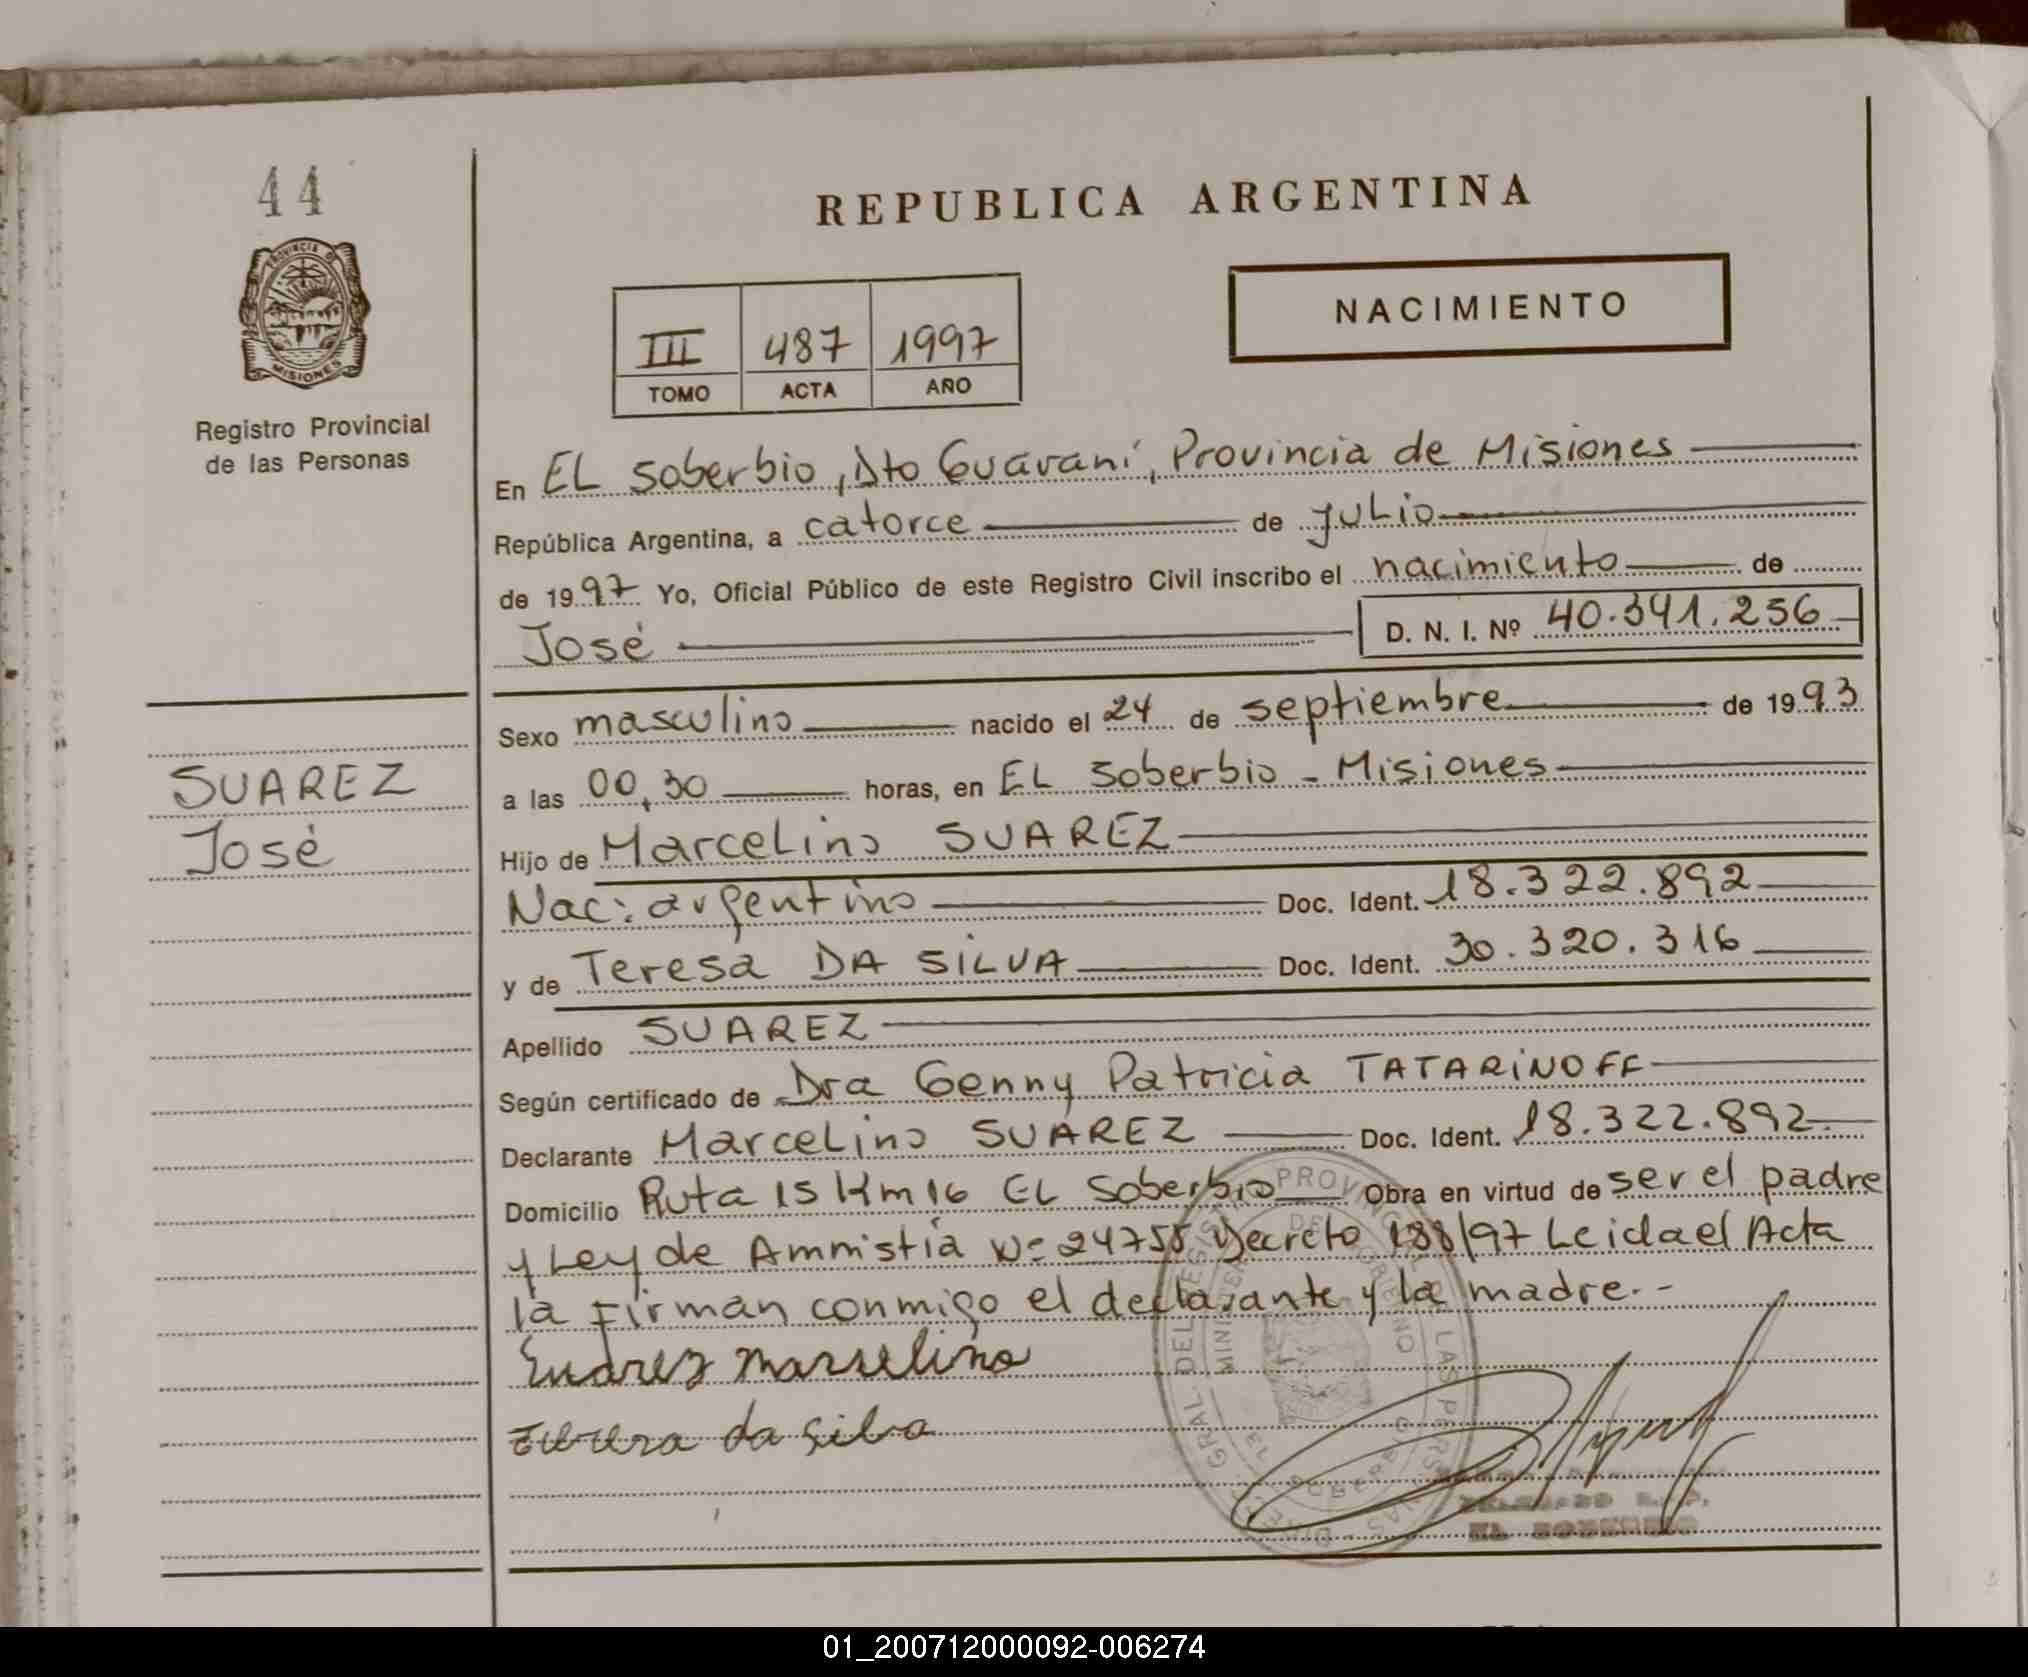 44
REPUBLICA ARGENTINA
PROVINCIA DE
MISIONES
NACIMIENTO
III 487 1997
TOMO ACTA AÑO
Registro Provincial
de las Personas
En EL Soberbio, Dto Guaraní, Provincia de Misiones
República Argentina, a catorce de julio
de 1997 Yo, Oficial Público de este Registro Civil inscribo el nacimiento de
José D. N. I. Nº 40.341.256
Sexo masculino nacido el 24 de septiembre de 1993
SUAREZ
a las 00,30 horas, en EL Soberbio - Misiones
José
Hijo de Marcelino SUAREZ
Nac: argentino Doc. Ident. 18.322.892
y de Teresa DA SILVA Doc. Ident. 30.320.316
Apellido SUAREZ
Según certificado de Dra Genny Patricia TATARINOFF
Declarante Marcelino SUAREZ Doc. Ident. 18.322.892.
Domicilio Ruta 15 Km 16 EL Soberbio Obra en virtud de ser el padre
y Ley de Amnistía Nº 24755 Decreto 188/97 Leida el Acta
la Firman conmigo el declarante y la madre.-
Suarez Marselino
da Silva
01_200712000092-006274